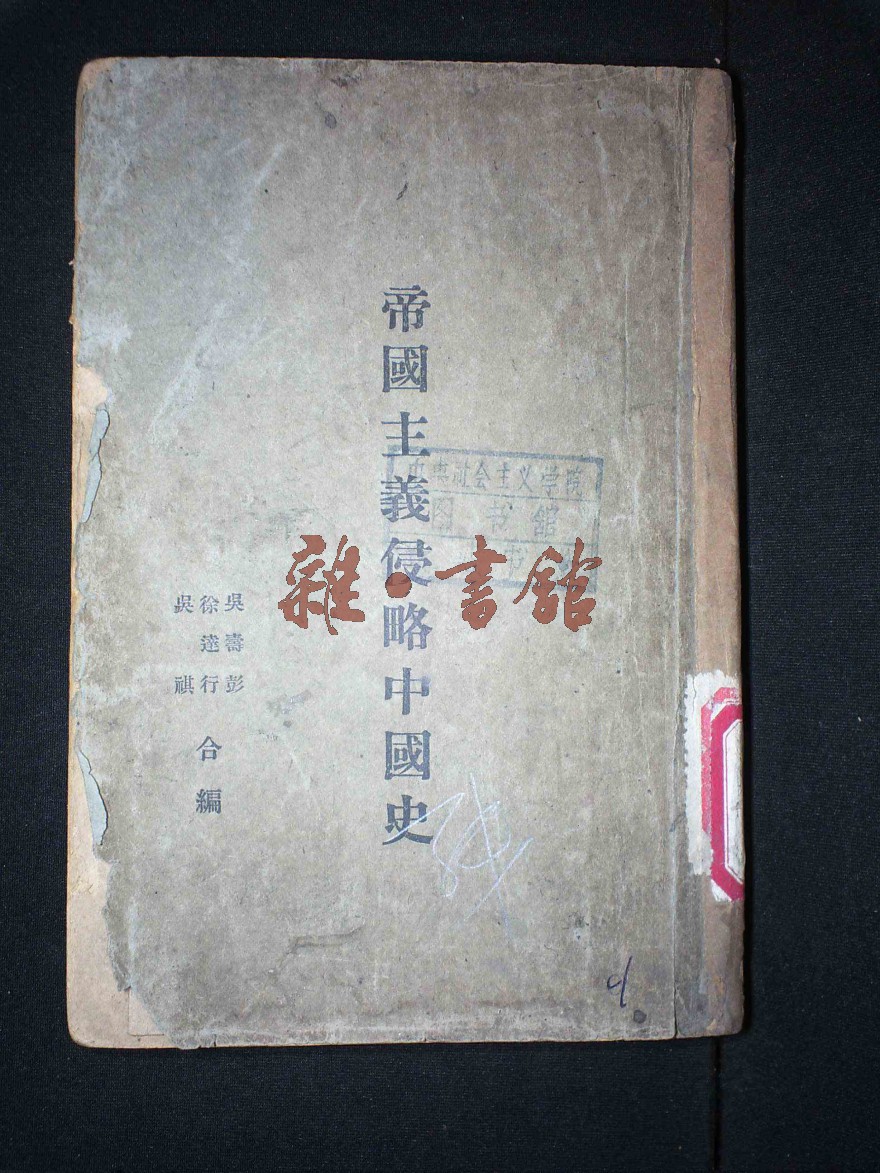 帝國主義侵略中國史
吳壽彭
徐逵行
吳祺
合編
中央社会主义学院
图书馆
雜·書館